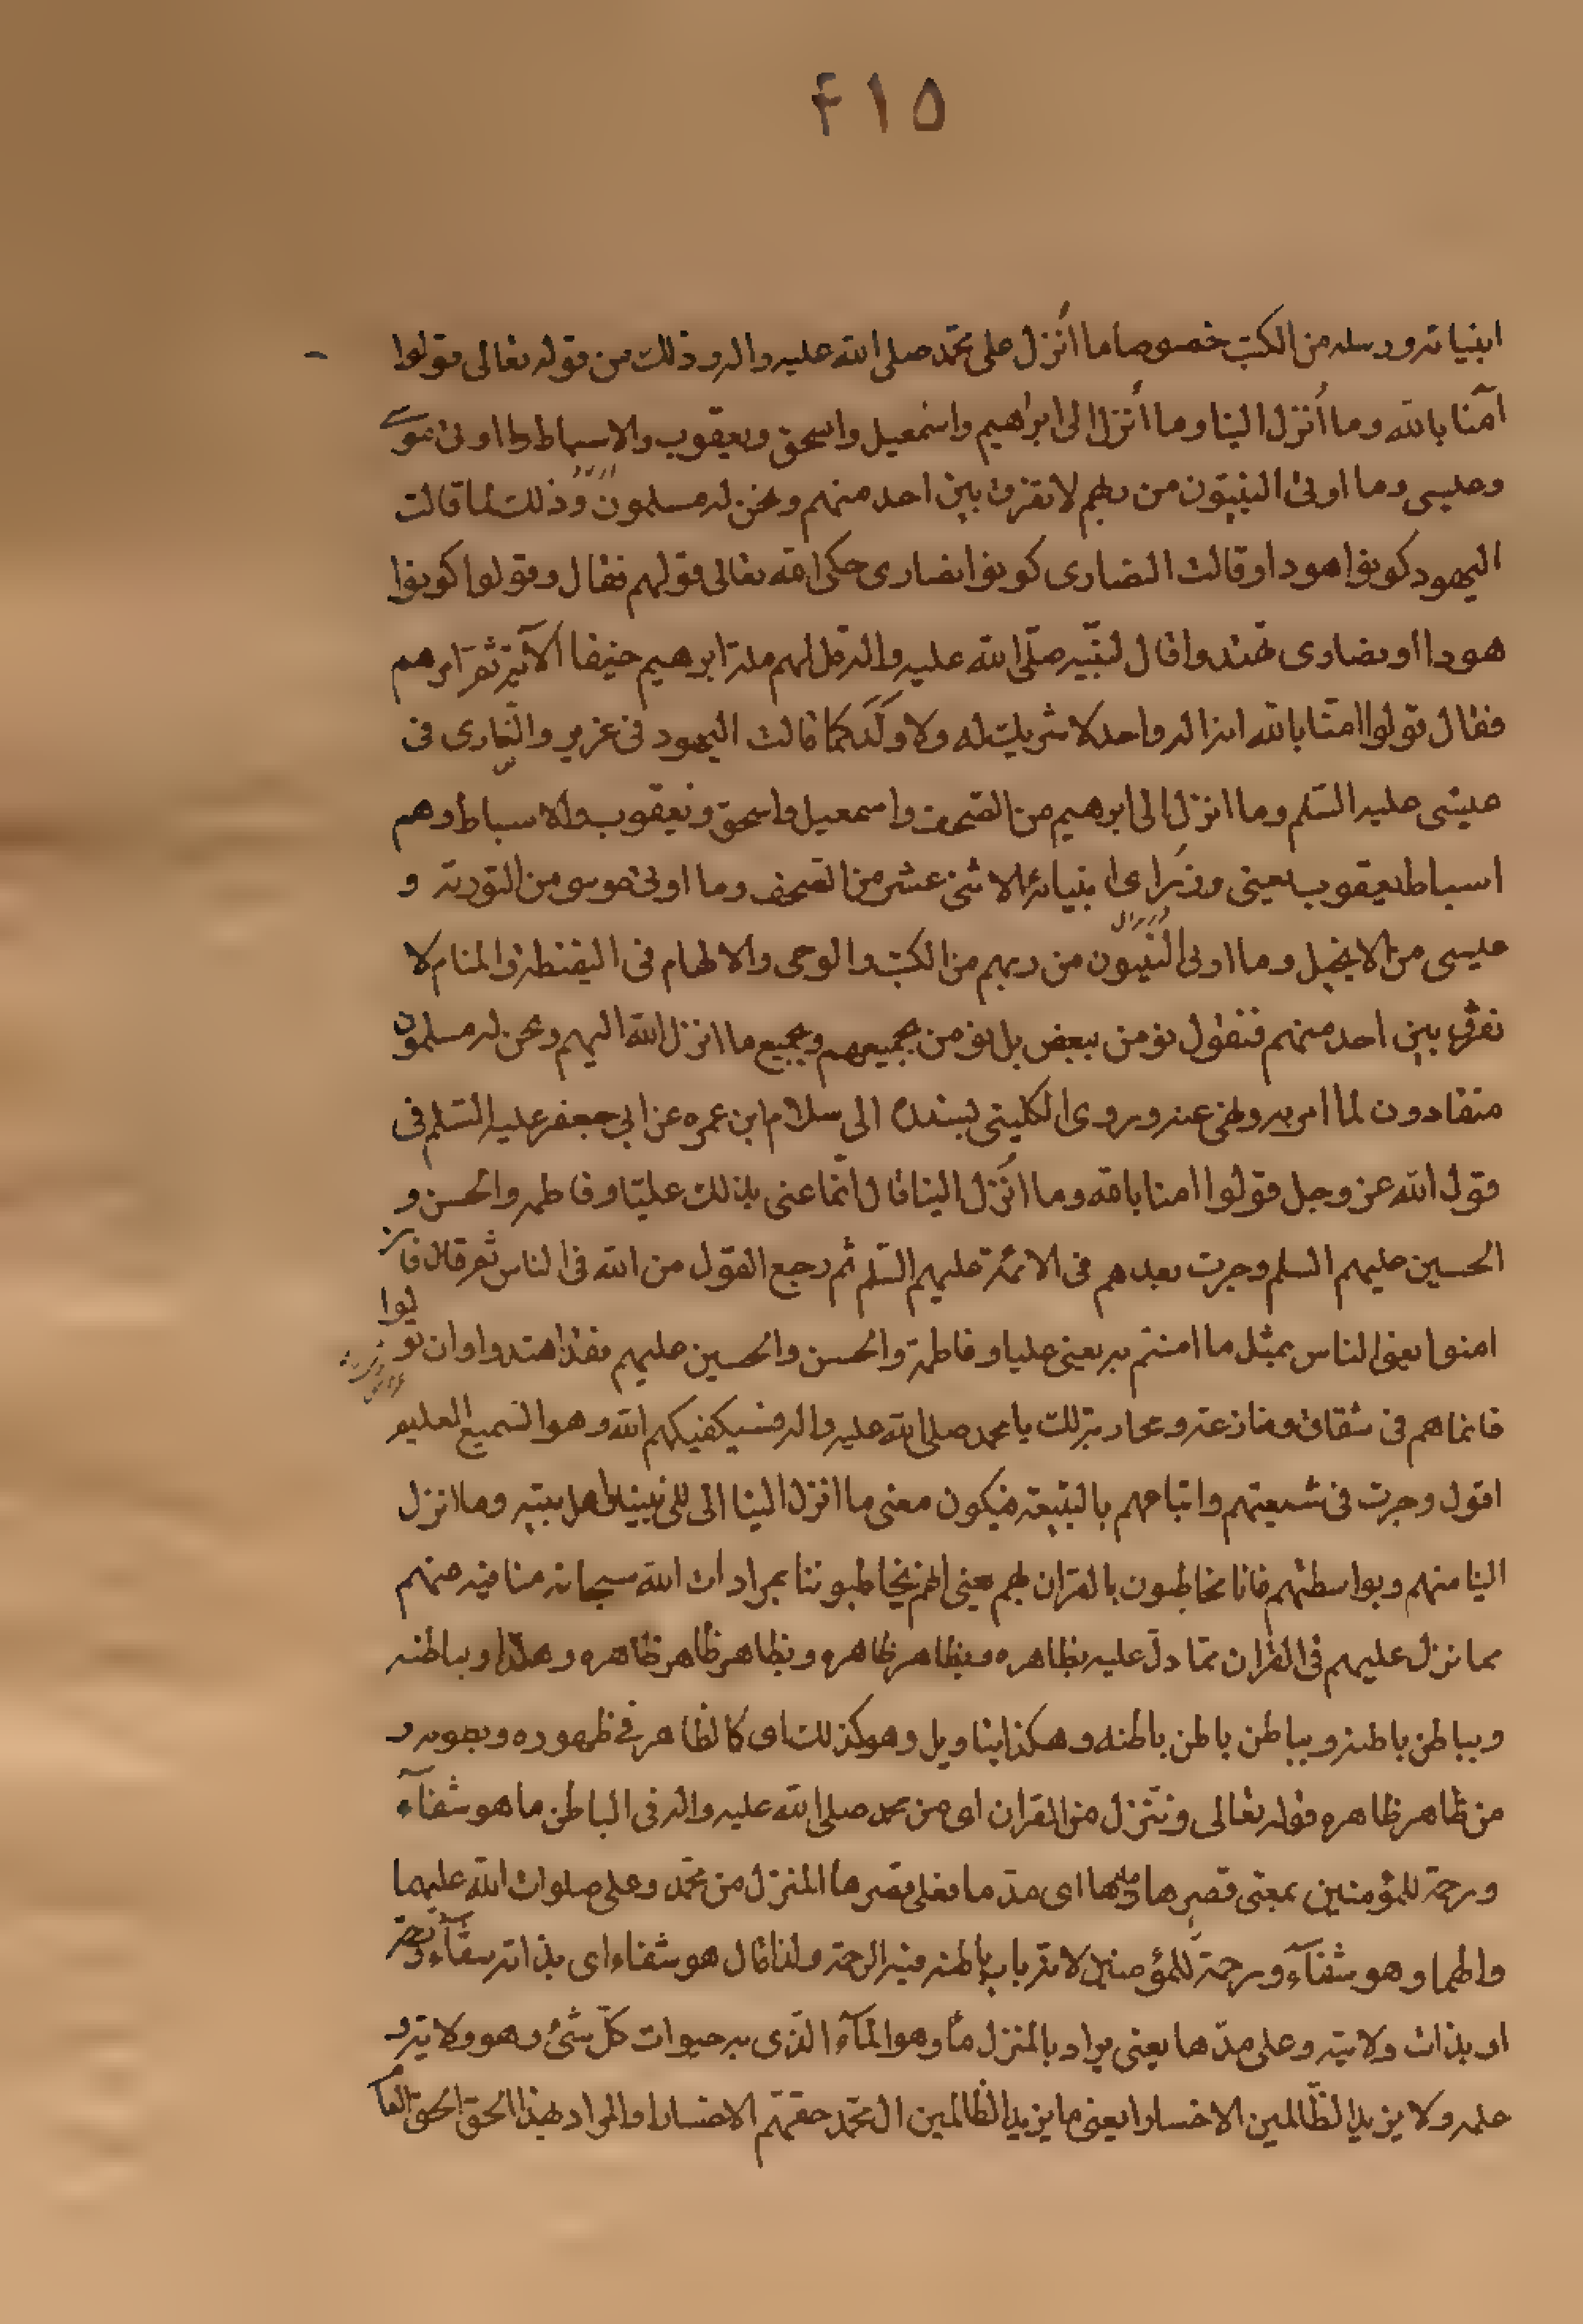 ۴۱۵
انبيائه ورسله من الكتب خصوصا ما اُنزل على محمّد صلى الله عليه واله وذلك من قوله تعالى قولوا
آمنا بالله وما اُنزل الينا وما اُنزل الى ابراهيم واسمعيل واسحق ويعقوب والاسباط وما اوتى موسى
وعيسى وما اوتى النبيّون من ربهم لا نفرق بين احد منهم ونحن له مسلمون وذلك لما قالت
اليهود كونوا هودا وقالت النصارى كونوا نصارى حكى الله تعالى قولهم فقال وقولوا كونوا
هودا او نصارى تهتدوا قال لنبيّه صلّى الله عليه واله قل لهم ملة ابرهيم حنيفا الآية ثم امرهم
فقال قولوا امنّا بالله انه اله واحد لا شريك له ولا ولَد كما قالت اليهود فى عزير والنصارى فى
عيسى عليه السّلم وما انزل الى ابرهيم من الصّحف واسمعيل واسحق ويعقوب والاسباط وهم
اسباط يعقوب يعنى وذكر اى انبيائه الاثنى عشر من الصحف وما اوتى موسى من التورية و
عيسى من الانجيل وما اوتى النبيّون من ربهم من الكتب والوحى والالهام فى اليقظة والمنام لا
نفرّق بين احد منهم فنقول نؤمن ببعض بل نؤمن بجميعهم وبجميع ما انزل الله اليهم ونحن له مسلمون
منقادون لما امر به ونهى عنه وروى الكلينى بسنده الى سلام ابن عمره عن ابي جعفر عليه السّلم فى
قول الله عز وجل قولوا امنا بالله وما اُنزل الينا قال انّما عنى بذلك عليّا وفاطمه والحسن و
الحسين عليهم السلم وجرت بعدهم فى الائمّة عليهم السّلم ثم رجع القول من الله فى الناس ثم قال فان
امنوا يعنى الناس بمثل ما امنتم به يعنى عليا وفاطمة والحسن والحسين عليهم فقد اهتدوا وان تولوا
فانما هم فى شقاق ومنازعة ومحاربة لك يا محمد صلى الله عليه واله فسيكفيكهم الله وهو السّميع العليم
اقول وجرت فى شيعتهم واتباعهم بالتبيعة فيكون معنى ما انزل الينا الى نبينا واهل بيته وما انزل
الينا منهم وبواسطتهم فانا مخاطبون بالقران بهم يعنى انهم يخاطبوننا بمرادات الله سبحانه منا فيه منهم
مما نزل عليهم فى القران ممّا دلّ عليه بظاهره وبظاهر ظاهره وبظاهر ظاهر ظاهره وهكذا وبباطنه
وبباطن باطنه وبباطن باطن باطنه وهكذا بتاويل وهو كذلك اى كالظاهر فى ظهوره وبطونه و
من ظاهر ظاهره قوله تعالى وننزل من القران اى من محمد صلى الله عليه واله فى الباطن ما هو شفآء
ورحمة للمؤمنين بمعنى قصرها ومدّها اى مدّ ما فعلى قصرها المنزل من محمّد وعلى صلوات الله عليهما
والهما وهو شفآء ورحمة للمؤمنين لانه باب باطنه فيه الرحمة ولذا قال هو شفاء اى بذاته شفآء ورحمة
او بذات ولايته وعلى مدّها يعنى يراد بالمنزل مآء وهو المآء الذى به حيوات كلّ شئ وهو ولايته و
علمه ولا يزيد الظّالمين الا خسارا يعنى ما يزيد الظالمين ال محمّد حقهم الا خسارا والمراد بهذا الحق الحق العام